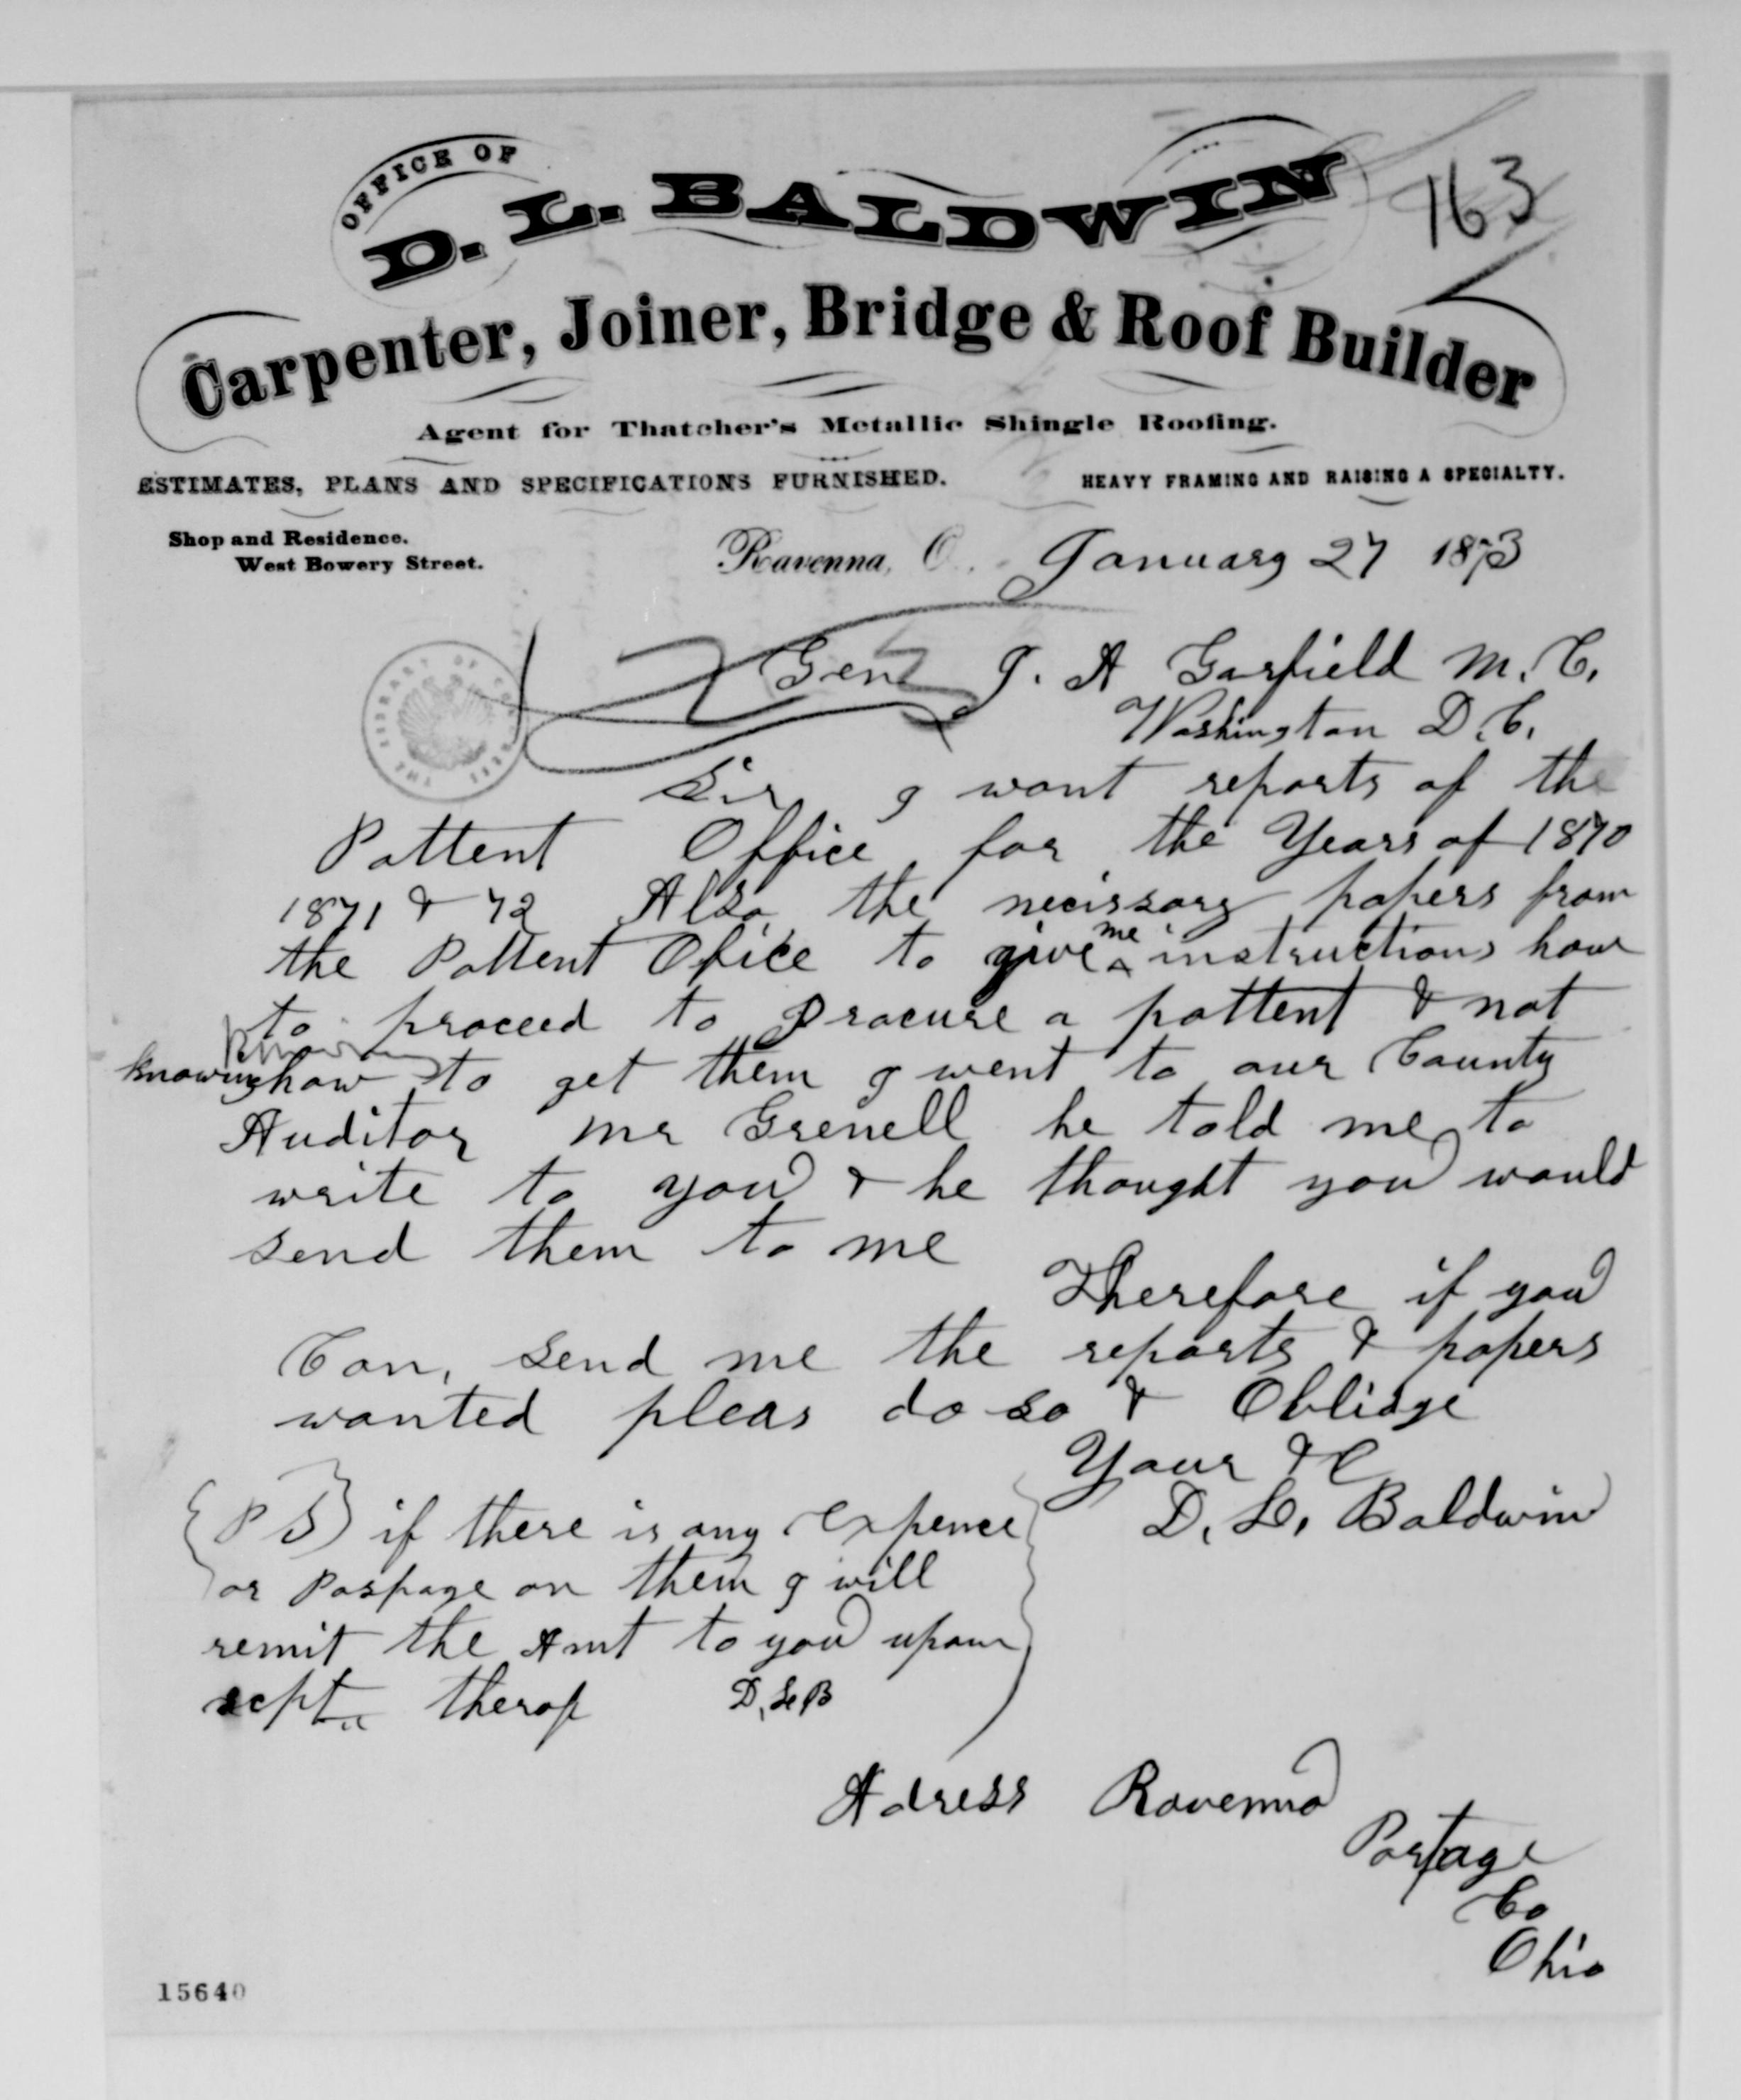 163
OFFICE OF
D. L. BALDWIN
Carpenter, Joiner, Bridge & Roof Builder
Agent for Thatcher's Metallic Shingle Roofing.
ESTIMATES, PLANS AND SPECIFICATIONS FURNISHED. HEAVY FRAMING AND RAISING A SPECIALTY.
Shop and Residence.
West Bowery Street.
Ravenna, O. January 27 1873
Genl J. A Garfield M. C.
Washington D. C.
THE LIBRARY OF CONGRESS
Sir I want reports of the
Pattent Office for the Years of 1870
1871 & 72 Also the necissary papers from
the Pattent Ofice to give me instructions how
to proceed to Procure a pattent & not
knowing how to get them I went to our County
Auditor Mr Grenell he told me to
write to you & he thought you would
send them to me
Therefore if you
Can, send me the reports & papers
wanted pleas do so & Oblidge
Your &C
D. L. Baldwin
P S if there is any Expence
or Pospage on them I will
remit the Amt to you upon
rept therof D. L B
Adress Ravenna
Portage
Co
Ohio
15640